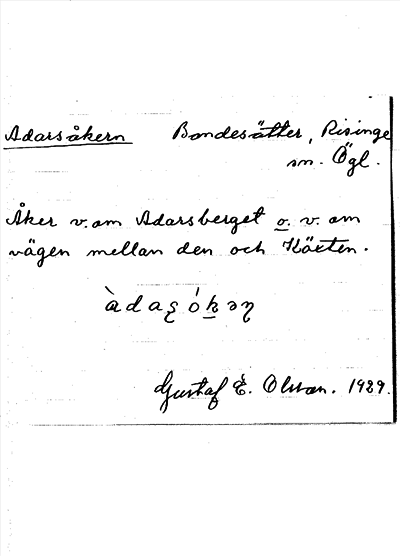 Adarsåkern Bondesätter, Risinge
sn. Ögl.
Åker v. om Adarsberget o. v. om
vägen mellan den och Kärten.
àdaʂ ókən
Gustaf E. Olsson. 1929.